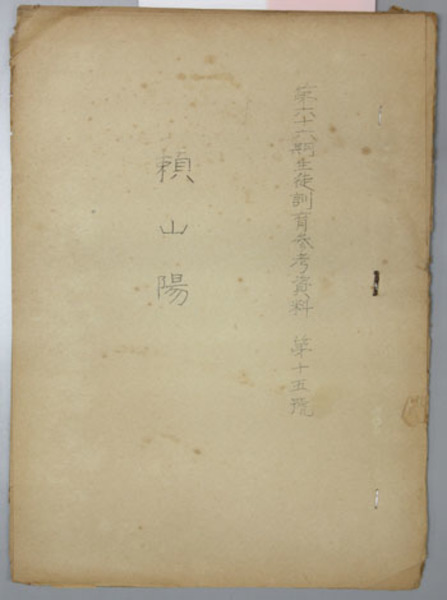 第六十六期生徒訓育参考資料 第十五號
頼山陽